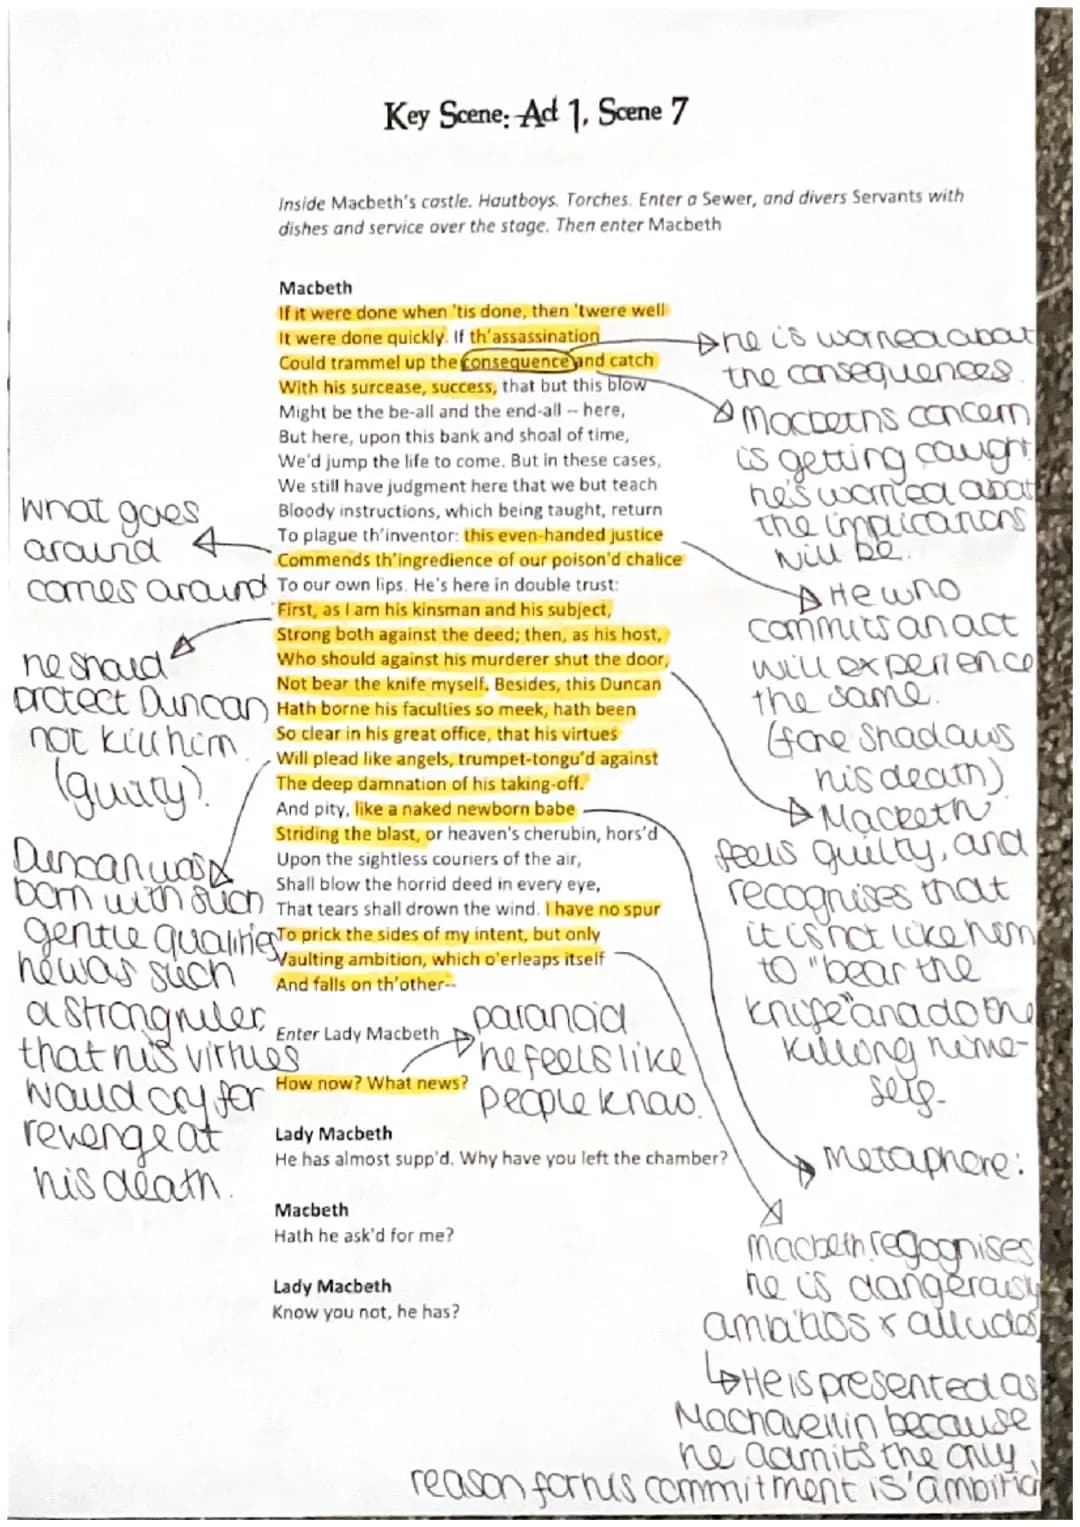 Key Scene: Act 1, Scene 7
Inside Macbeth's castle. Hautboys. Torches. Enter a Sewer, and divers Servants with
dishes and service over the stage. Then enter Macbeth
Macbeth
If it were done when 'tis done, then 'twere well
It were done quickly. If th'assassination
Could trammel up the consequence and catch
With his surcease, success, that but this blow
Might be the be-all and the end-all -- here,
But here, upon this bank and shoal of time,
We'd jump the life to come. But in these cases,
We still have judgment here that we but teach
Bloody instructions, which being taught, return
To plague th'inventor: this even-handed justice
Commends th'ingredience of our poison'd chalice
To our own lips. He's here in double trust:
First, as I am his kinsman and his subject,
Strong both against the deed; then, as his host,
Who should against his murderer shut the door,
Not bear the knife myself. Besides, this Duncan
Hath borne his faculties so meek, hath been
So clear in his great office, that his virtues
Will plead like angels, trumpet-tongu'd against
The deep damnation of his taking-off.
And pity, like a naked newborn babe
Striding the blast, or heaven's cherubin, hors'd
Upon the sightless couriers of the air,
Shall blow the horrid deed in every eye,
That tears shall drown the wind. I have no spur
To prick the sides of my intent, but only
Vaulting ambition, which o'erleaps itself
And falls on th'other--
Enter Lady Macbeth
How now? What news?
Lady Macbeth
He has almost supp'd. Why have you left the chamber?
Macbeth
Hath he ask'd for me?
Lady Macbeth
Know you not, he has?
what goes
around
comes around
he should
protect Duncan
not kill him
(guilty).
Duncan was
born with such
gentle qualities
he was such
a strong ruler,
that his virtues
would cry for
revenge at
his death.
paranoid
he feels like
people know.
he is worried about
the consequences.
Macbeths concern
is getting caught
he's worried about
the implications
will be.
He who
commits an act
will experience
the same.
(fore shadows
his death)
Macbeth
feels guilty, and
recognises that
it is not like him
to "bear the
knife" and do the
killing hime-
self-
Metaphore:
Macbeth regognises
he is dangerously
ambitios & alludes
He is presented as
Machavellin because
he admits the only
reason for his commitment is 'ambition